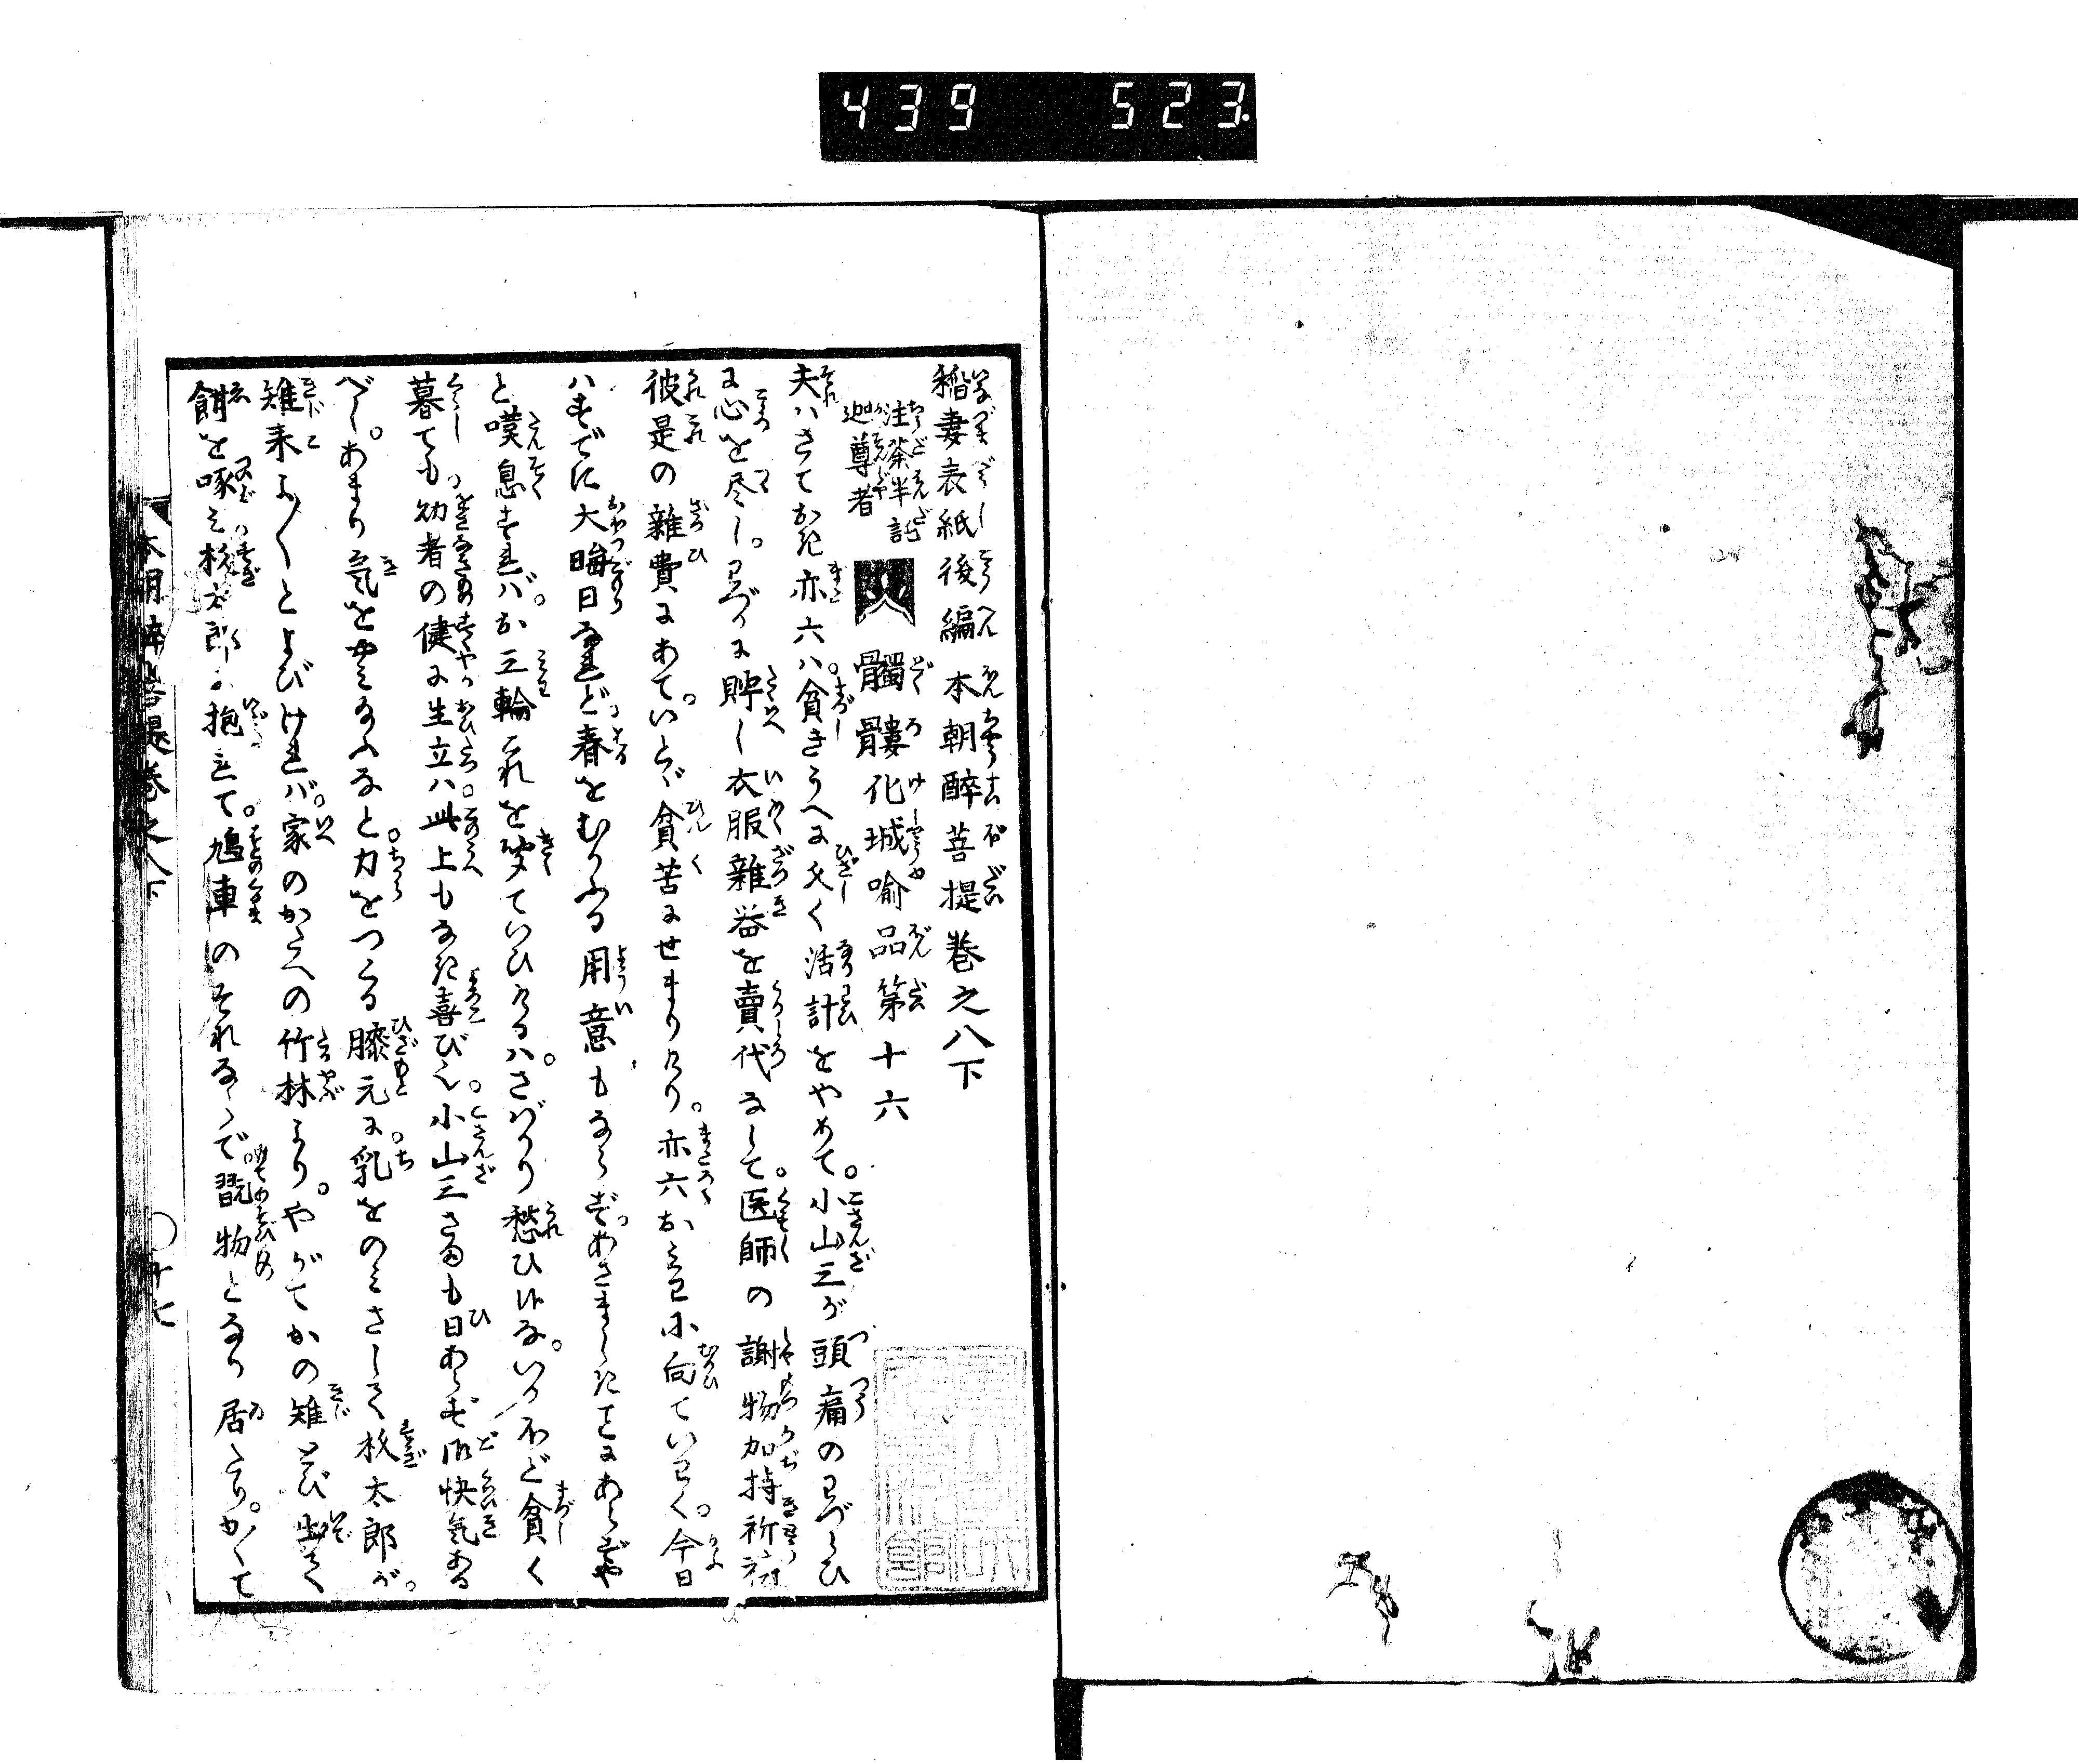 439 523
稲妻表紙後編 本朝酔菩提巻之八下
注荼半託
迦尊者
髑髏化城喩品第十六
夫ハさておき亦六ハ。貧きうへに久く活計をやめて。小山三が頭痛のわづらひ
に心を尽し。わづかに貯し衣服雑器を賣代なして。医師の謝物加持祈祷
彼是の雑費にあて。いとゞ貧苦にせまりけり。亦六お三輪に向ていわく。今日
ハすでに大晦日なれど。春をむかふる用意もならず。あさましきことにあらずや
と嘆息すれバ。お三輪これを聞ていひけるハ。さばかり愁ひ給な。いかほど貧く
暮ても。幼者の健に生立ハ。此上もなき喜びぞ。小山三さまも日あらず御快気ある
べし。あまり気をやみ給ふなと。力をつくる膝元に。乳をのみさして枝太郎が。
雉来よ〳〵とよびけれバ。家のかたへの竹林より。やがてかの雉とび出て
餌を啄み。枝太郎に抱れて。鳩車のそれならで。翫物となり居たり。かくて
本朝酔菩提巻之八下 〇十七